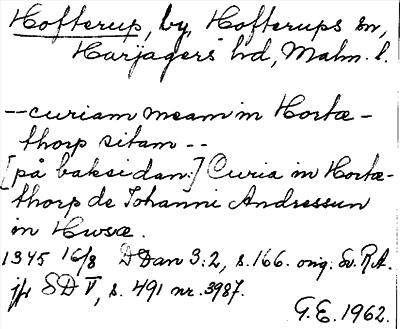 Hofterup, by, Hofterups sn,
Harjagers hd, Malm. l.
-- curiam meam in Hortæ-
thorp sitam --
[på baksidan:] Curia in Hortæ-
thorp de Iohanni Andressun
in Hwsæ.
1345 16/8 DDan 3:2, s.166. orig. Sv. R.A.
jfr SD V, s. 491 nr. 3987.
G.E. 1962.